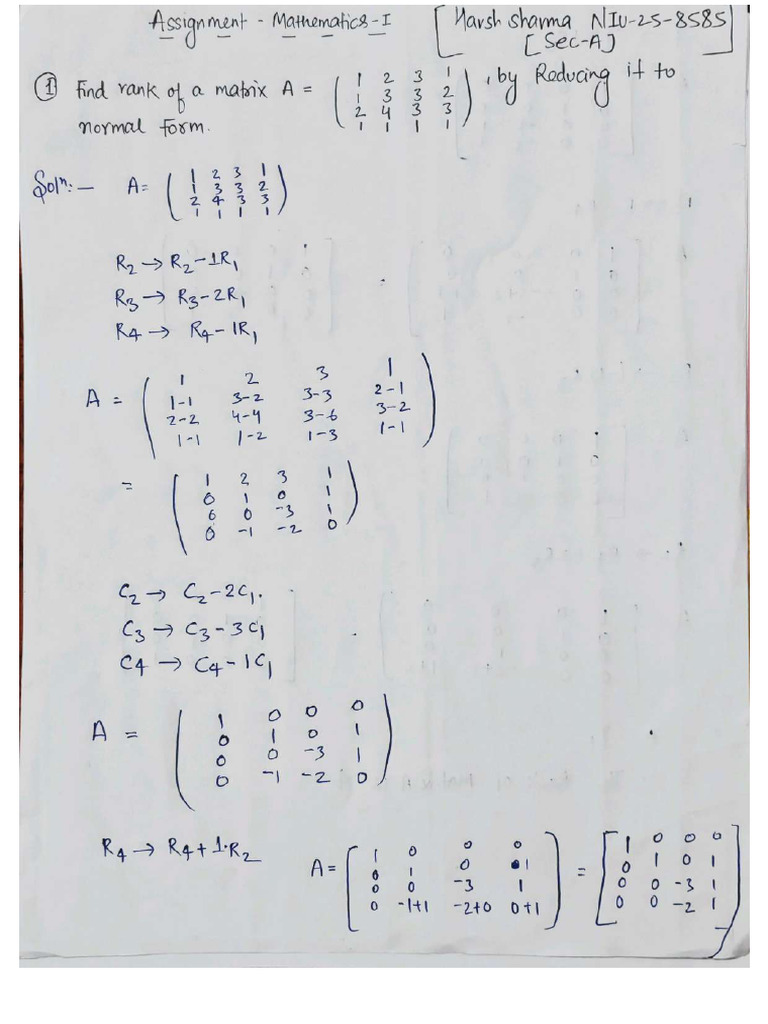 Assignment - Mathematics-I [Harsh Sharma NIU-25-8585
[Sec-A]]
① Find rank of a matrix A = ( 1 2 3 1 ) , by Reducing it to
1 3 3 2
2 4 3 3
1 1 1 1
normal form.
Solⁿ:- A = ( 1 2 3 1 )
1 3 3 2
2 4 3 3
1 1 1 1
R₂ → R₂-1R₁
R₃ → R₃-2R₁
R₄ → R₄-1R₁
A = ( 1 2 3 1 )
1-1 3-2 3-3 2-1
2-2 4-4 3-6 3-2
1-1 1-2 1-3 1-1
= ( 1 2 3 1 )
0 1 0 1
0 0 -3 1
0 -1 -2 0
C₂ → C₂-2C₁.
C₃ → C₃-3C₁
C₄ → C₄-1C₁
A = ( 1 0 0 0 )
0 1 0 1
0 0 -3 1
0 -1 -2 0
R₄ → R₄+1·R₂ A = [ 1 0 0 0 ] = [ 1 0 0 0 ]
0 1 0 1 0 1 0 1
0 0 -3 1 0 0 -3 1
0 -1+1 -2+0 0+1 0 0 -2 1